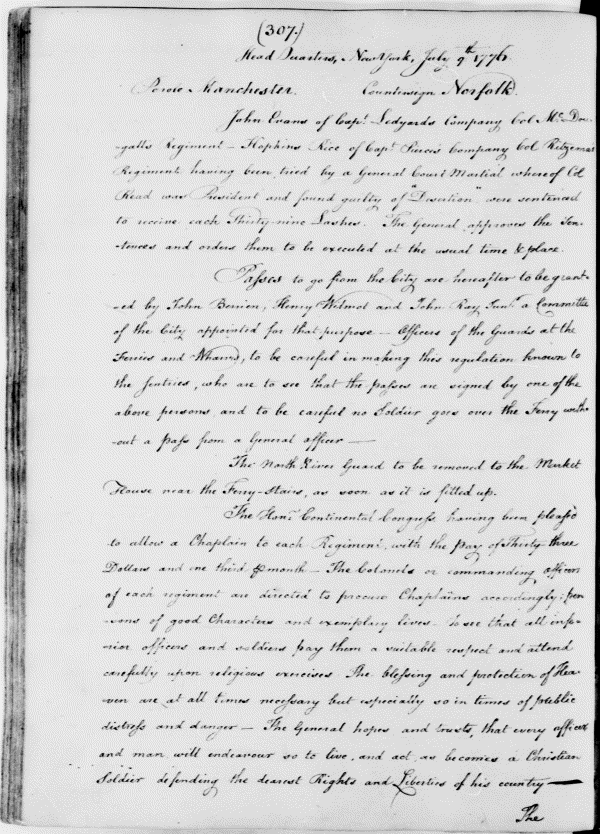 (307.)
Head Quarters, New York, July 9th 1776.
Parole Manchester. Countersign Norfolk.
John Evans of Capt. Ledyards Company Col McDou-
-galls Regiment — Hopkins Rice of Capt Pierces Company Col Ritzemas
Regiment having been tried by a General Court Martial whereof Col
Read was President and found guilty of "Desertion", were sentenced
to receive each Thirty-nine Lashes. The General approves the Sen-
tences and orders them to be executed at the usual time & place.
Passes to go from the City are hereafter to be grant-
-ed by John Berrien, Henry Wilmot and John Ray Junr. a Committee
of the City appointed for that purpose — Officers of the Guards at the
Ferries and Wharves, to be careful in making this regulation known to
the Sentries, who are to see that the passes are signed by one of the
above persons, and to be careful no Soldier goes over the Ferry with-
-out a pass from a General officer —
The North River Guard to be removed to the Market
House near the Ferry-Stairs, as soon as it is fitted up.
The Hon. Continental Congress having been pleased
to allow a Chaplain to each Regiment, with the pay of Thirty-three
Dollars and one third pr month — The Colonels or commanding officers
of each regiment are directed to procure Chaplains accordingly; per-
-sons of good Characters and exemplary lives — To see that all infe-
-rior officers and soldiers pay them a suitable respect and attend
carefully upon religious exercises. The blessing and protection of Hea-
-ven are at all times necessary but especially so in times of public
distress and danger — The General hopes and trusts, that every officer
and man, will endeavour so to live, and act, as becomes a Christian
Soldier defending the dearest Rights and Liberties of his country —
The